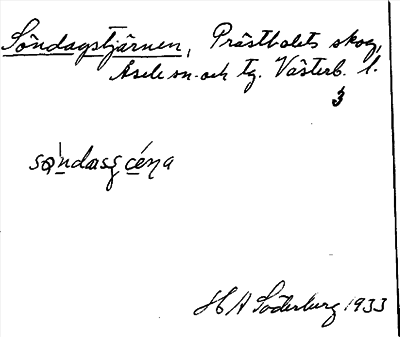 Söndagstjärnen, Prästbolets skog,
Åsele sn. och tg. Västerb. l.
3
sǫ̀ndasʂcéṇa
H A Söderburg 1933